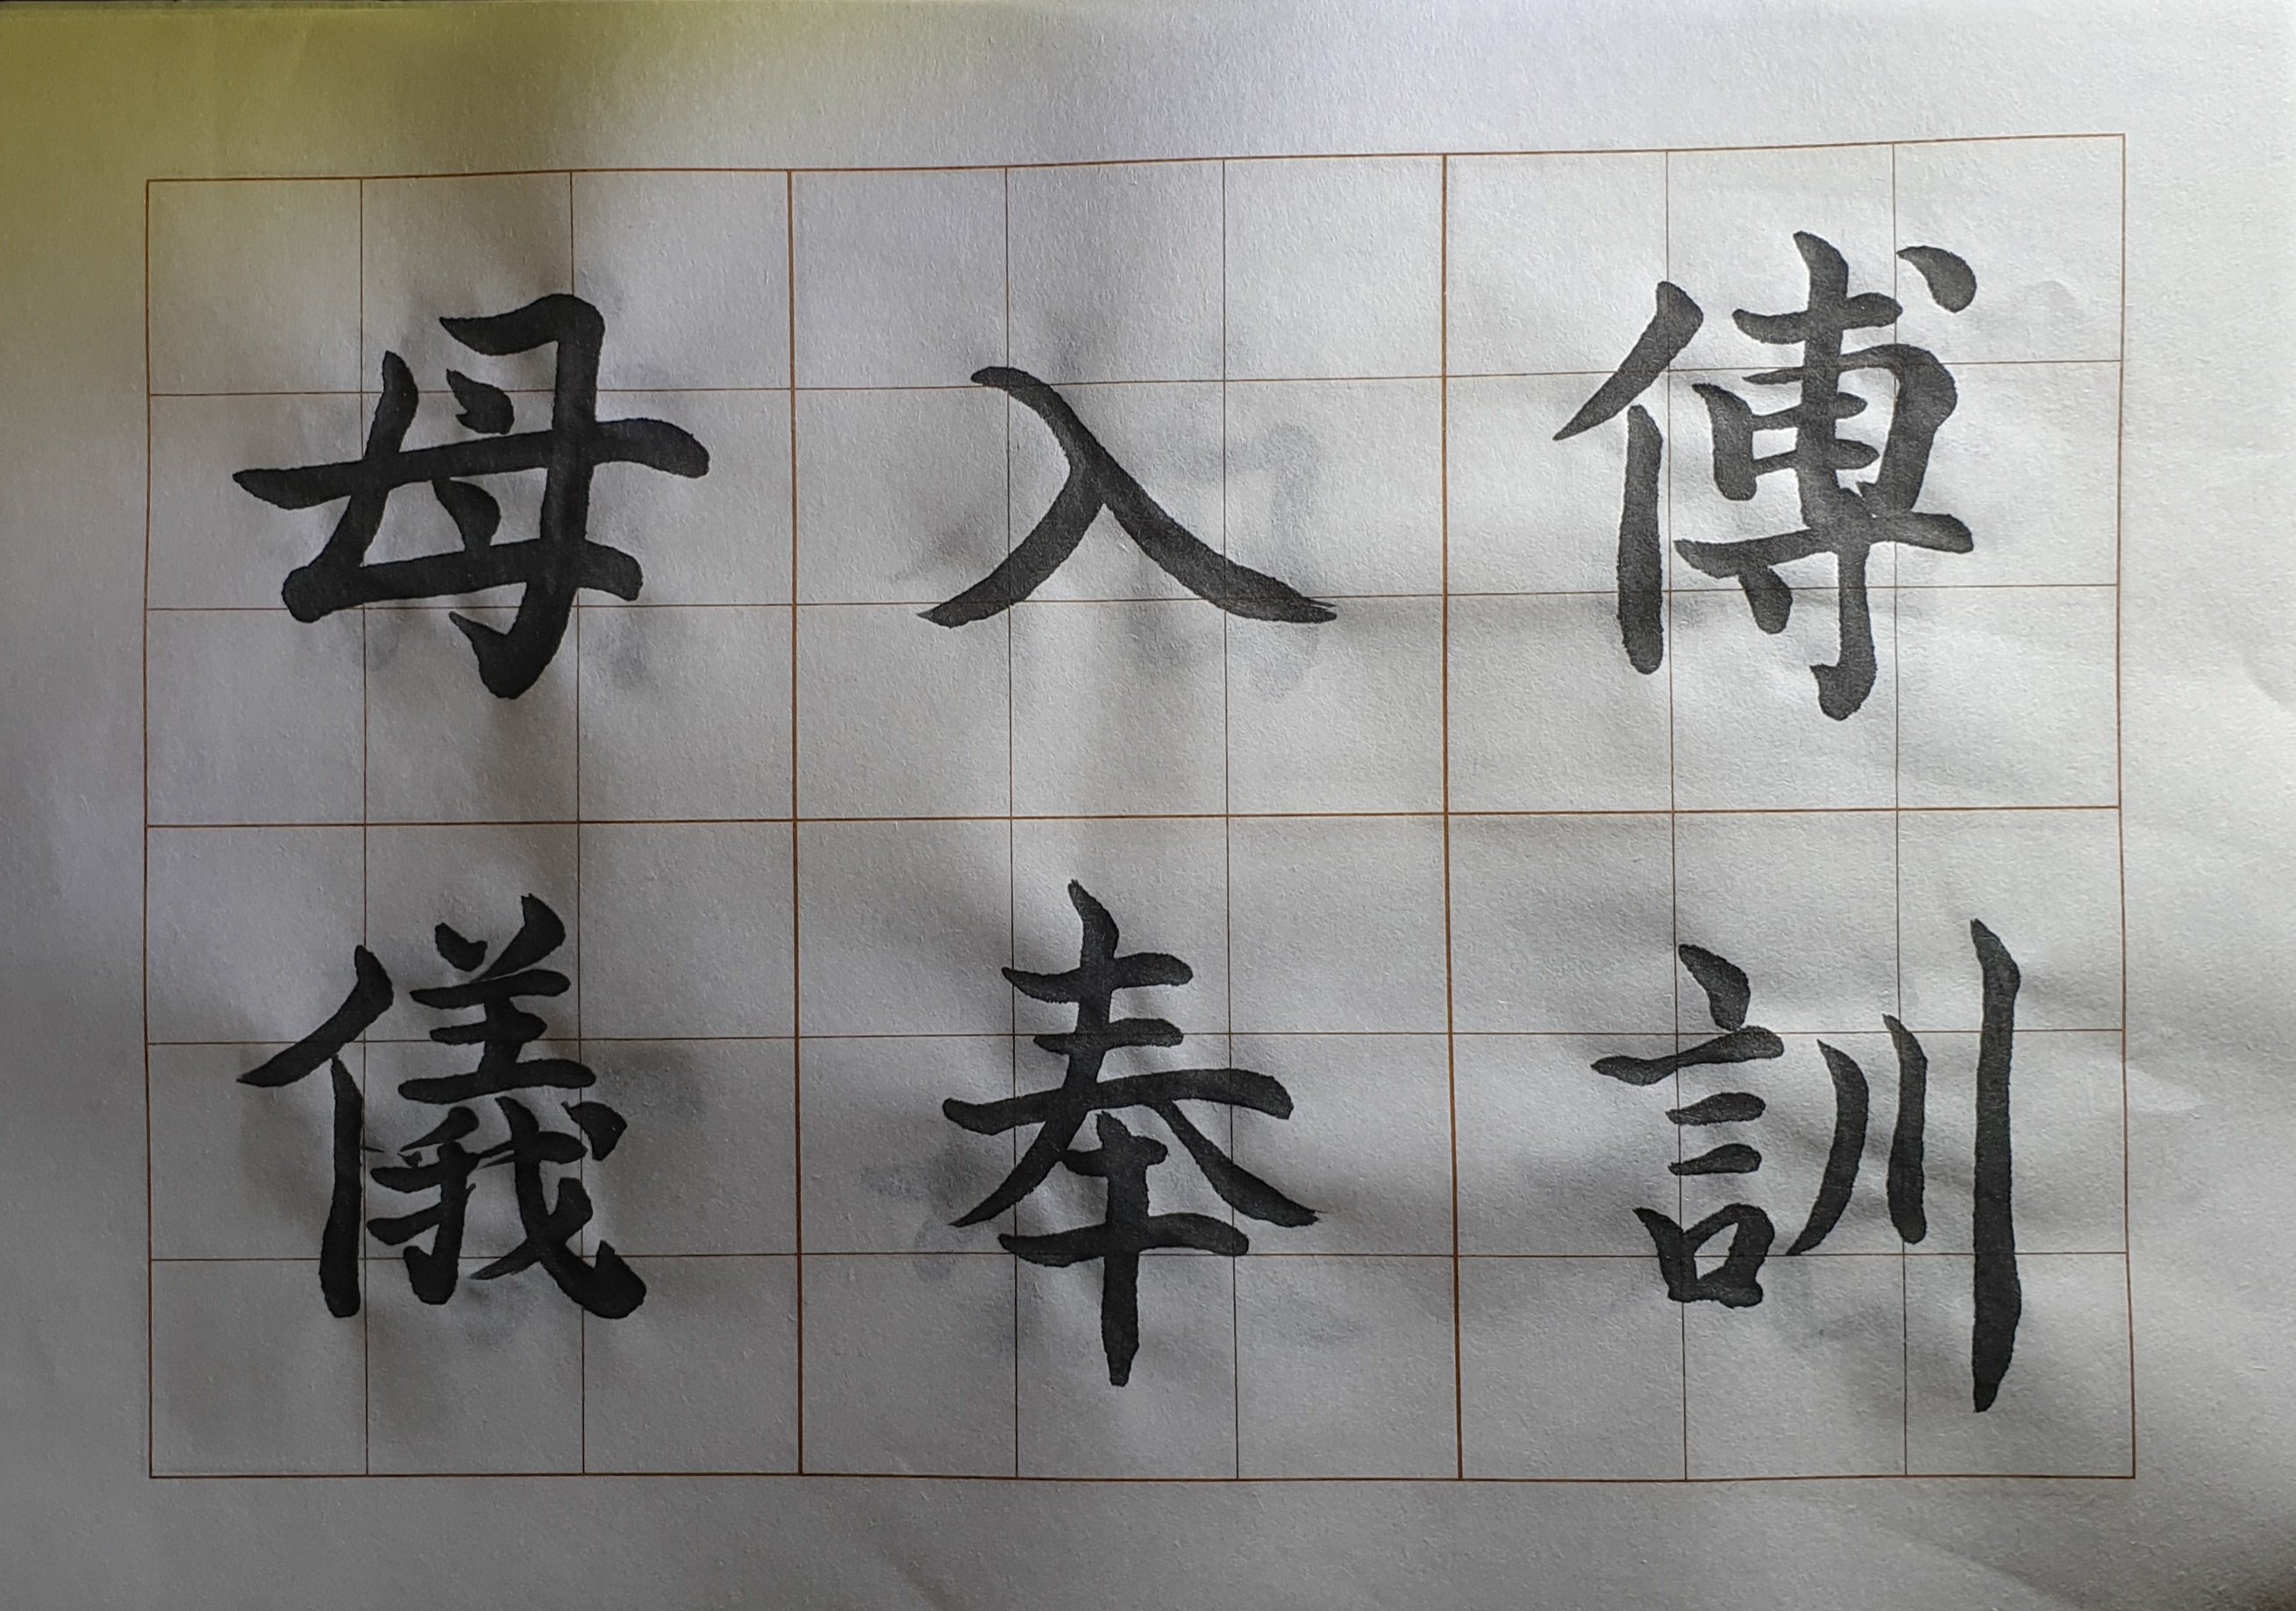 傅訓
入奉
母儀